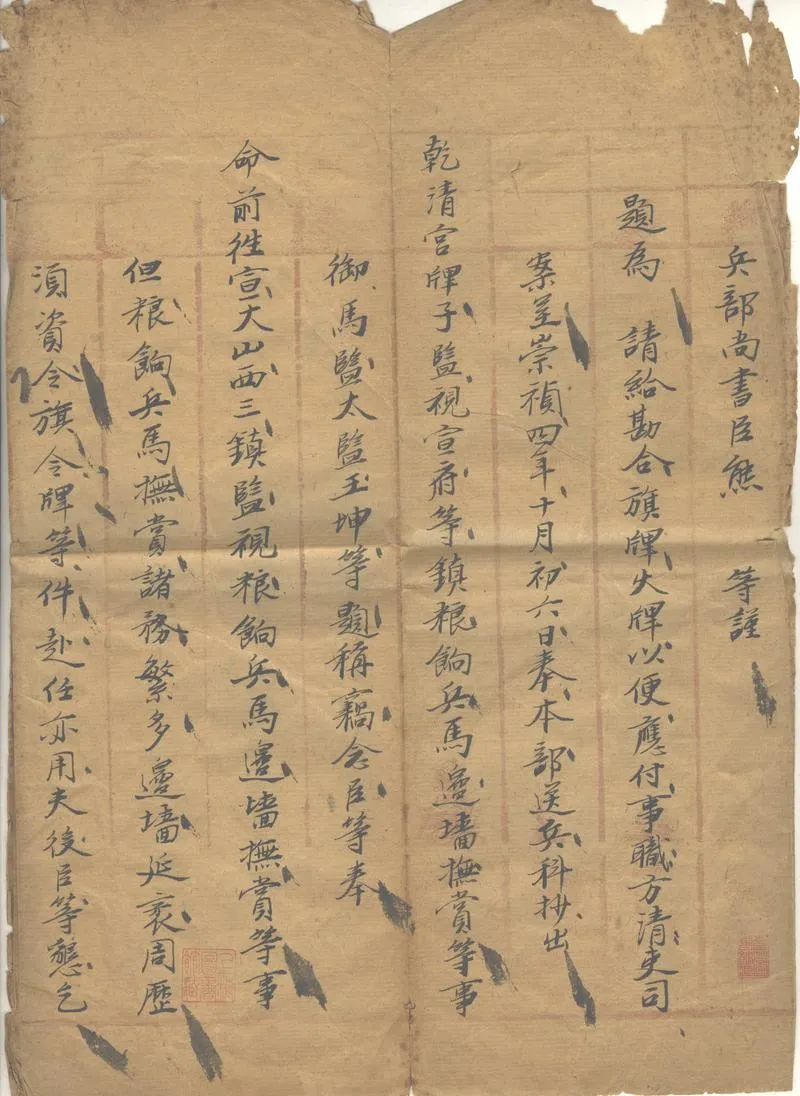 兵部尚書臣熊 等謹
題為 請給勘合旗牌火牌以便應付事職方清吏司
案呈崇禎四年十月初六日奉本部送兵科抄出
乾清宮牌子監視宣府等鎮粮餉兵馬邊墻撫賞等事
御馬監太監王坤等題稱竊念臣等奉
命前徃宣大山西三鎮監視粮餉兵馬邊墻撫賞等事
但粮餉兵馬撫賞諸務繁多邊墻延袤周歷
須資令旗令牌等件赴任亦用夫役臣等懇乞